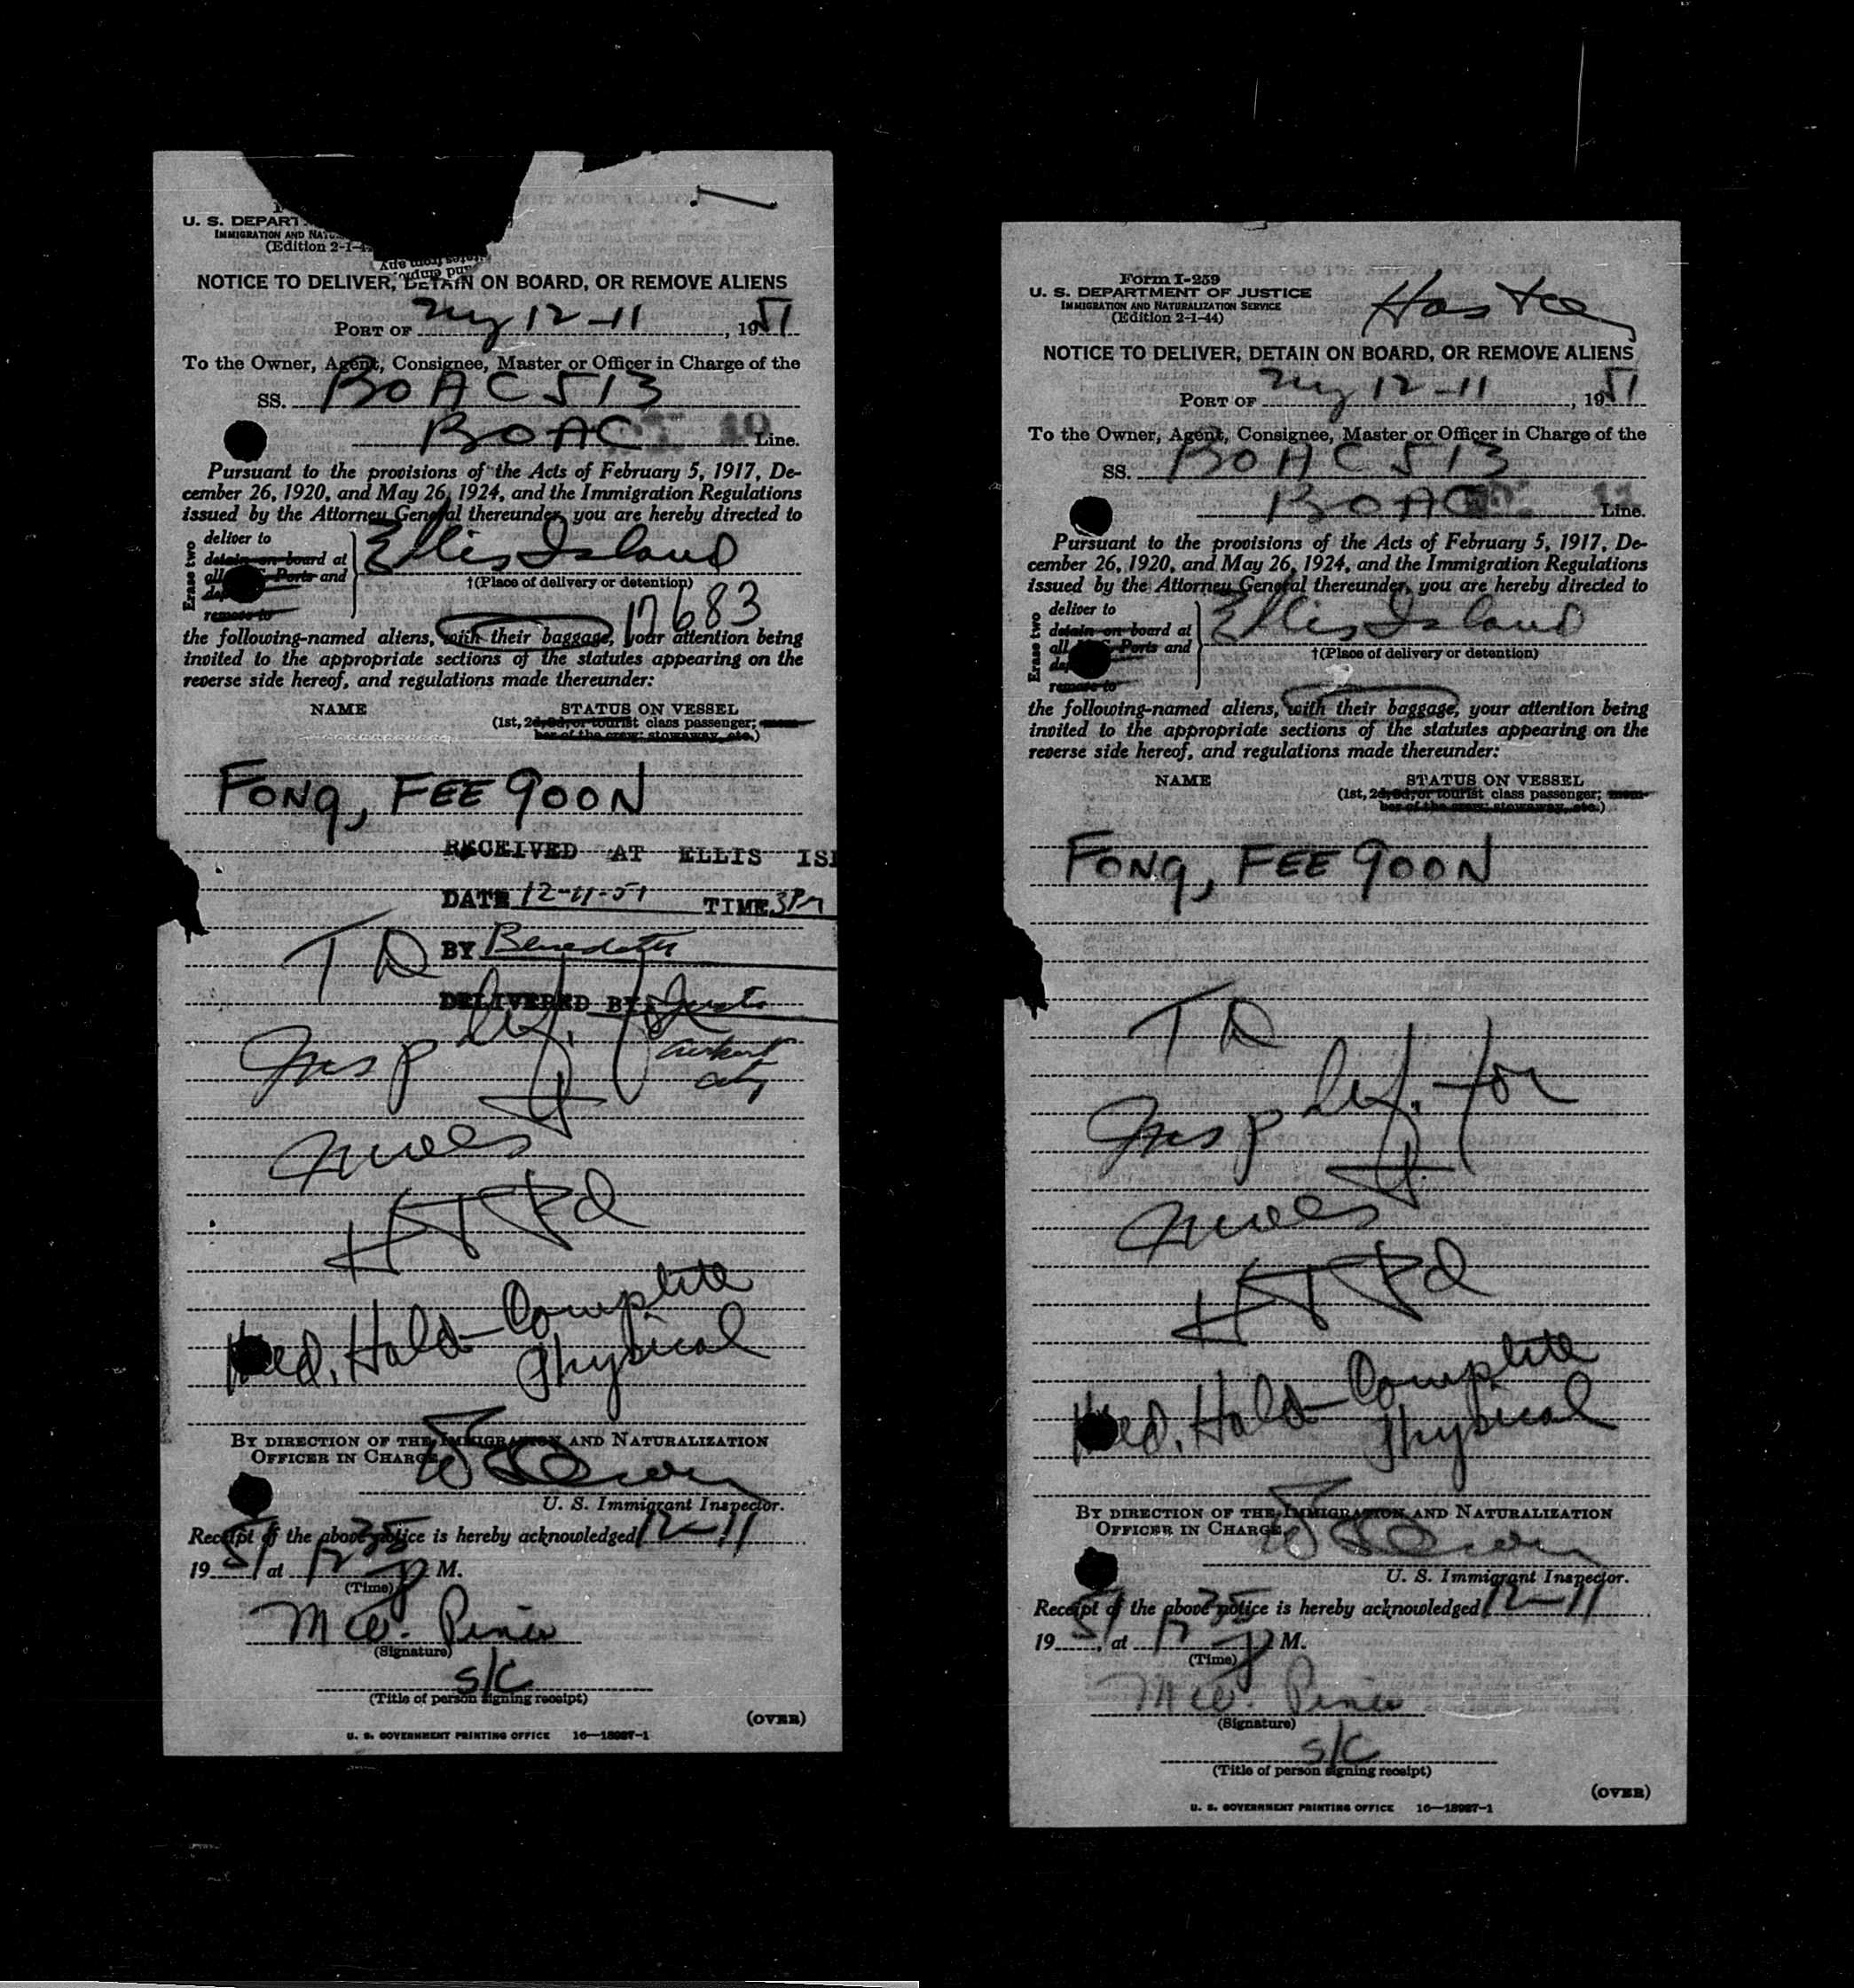 U. S. DEPART
IMMIGRATION AND NAT
(Edition 2-1-4
NOTICE TO DELIVER, DETAIN ON BOARD, OR REMOVE ALIENS
PORT OF NY 12-11, 1951
To the Owner, Agent, Consignee, Master or Officer in Charge of the
SS. BOAC 513
BOAC Line.
Pursuant to the provisions of the Acts of February 5, 1917, De-
cember 26, 1920, and May 26, 1924, and the Immigration Regulations
issued by the Attorney General thereunder, you are hereby directed to
Erase two
deliver to
detain on board at
all Ports and
remove to
Ellis Island
†(Place of delivery or detention)
17683
the following-named aliens, with their baggage, your attention being
invited to the appropriate sections of the statutes appearing on the
reverse side hereof, and regulations made thereunder:
NAME STATUS ON VESSEL
(1st, 2d, 3d, or tourist class passenger; mem-
ber of the crew; stowaway, etc.)
FONG, FEE GOON
RECEIVED AT ELLIS ISL
DATE 12-11-51 TIME 3PM
TD BY
DELIVERED BY
Insp for
Med. Hold - Complete
Physical
BY DIRECTION OF THE IMMIGRATION AND NATURALIZATION
OFFICER IN CHARGE,
U. S. Immigrant Inspector.
Receipt of the above notice is hereby acknowledged 12-11
1951 at 12 35 P M.
(Time)
(Signature)
S/C
(Title of person signing receipt)
(OVER)
U. S. GOVERNMENT PRINTING OFFICE 16—18987-1
Form I-259
U. S. DEPARTMENT OF JUSTICE
IMMIGRATION AND NATURALIZATION SERVICE
(Edition 2-1-44)
NOTICE TO DELIVER, DETAIN ON BOARD, OR REMOVE ALIENS
PORT OF NY 12-11, 1951
To the Owner, Agent, Consignee, Master or Officer in Charge of the
SS. BOAC 513
BOAC Line.
Pursuant to the provisions of the Acts of February 5, 1917, De-
cember 26, 1920, and May 26, 1924, and the Immigration Regulations
issued by the Attorney General thereunder, you are hereby directed to
Erase two
deliver to
detain on board at
all Ports and
remove to
Ellis Island
†(Place of delivery or detention)
the following-named aliens, with their baggage, your attention being
invited to the appropriate sections of the statutes appearing on the
reverse side hereof, and regulations made thereunder:
NAME STATUS ON VESSEL
(1st, 2d, 3d, or tourist class passenger; mem-
ber of the crew; stowaway, etc.)
FONG, FEE GOON
TD
Insp for
Med. Hold - Complete
Physical
BY DIRECTION OF THE IMMIGRATION AND NATURALIZATION
OFFICER IN CHARGE,
U. S. Immigrant Inspector.
Receipt of the above notice is hereby acknowledged 12-11
1951, at 12 35 P M.
(Time)
(Signature)
S/C
(Title of person signing receipt)
(OVER)
U. S. GOVERNMENT PRINTING OFFICE 16—18987-1